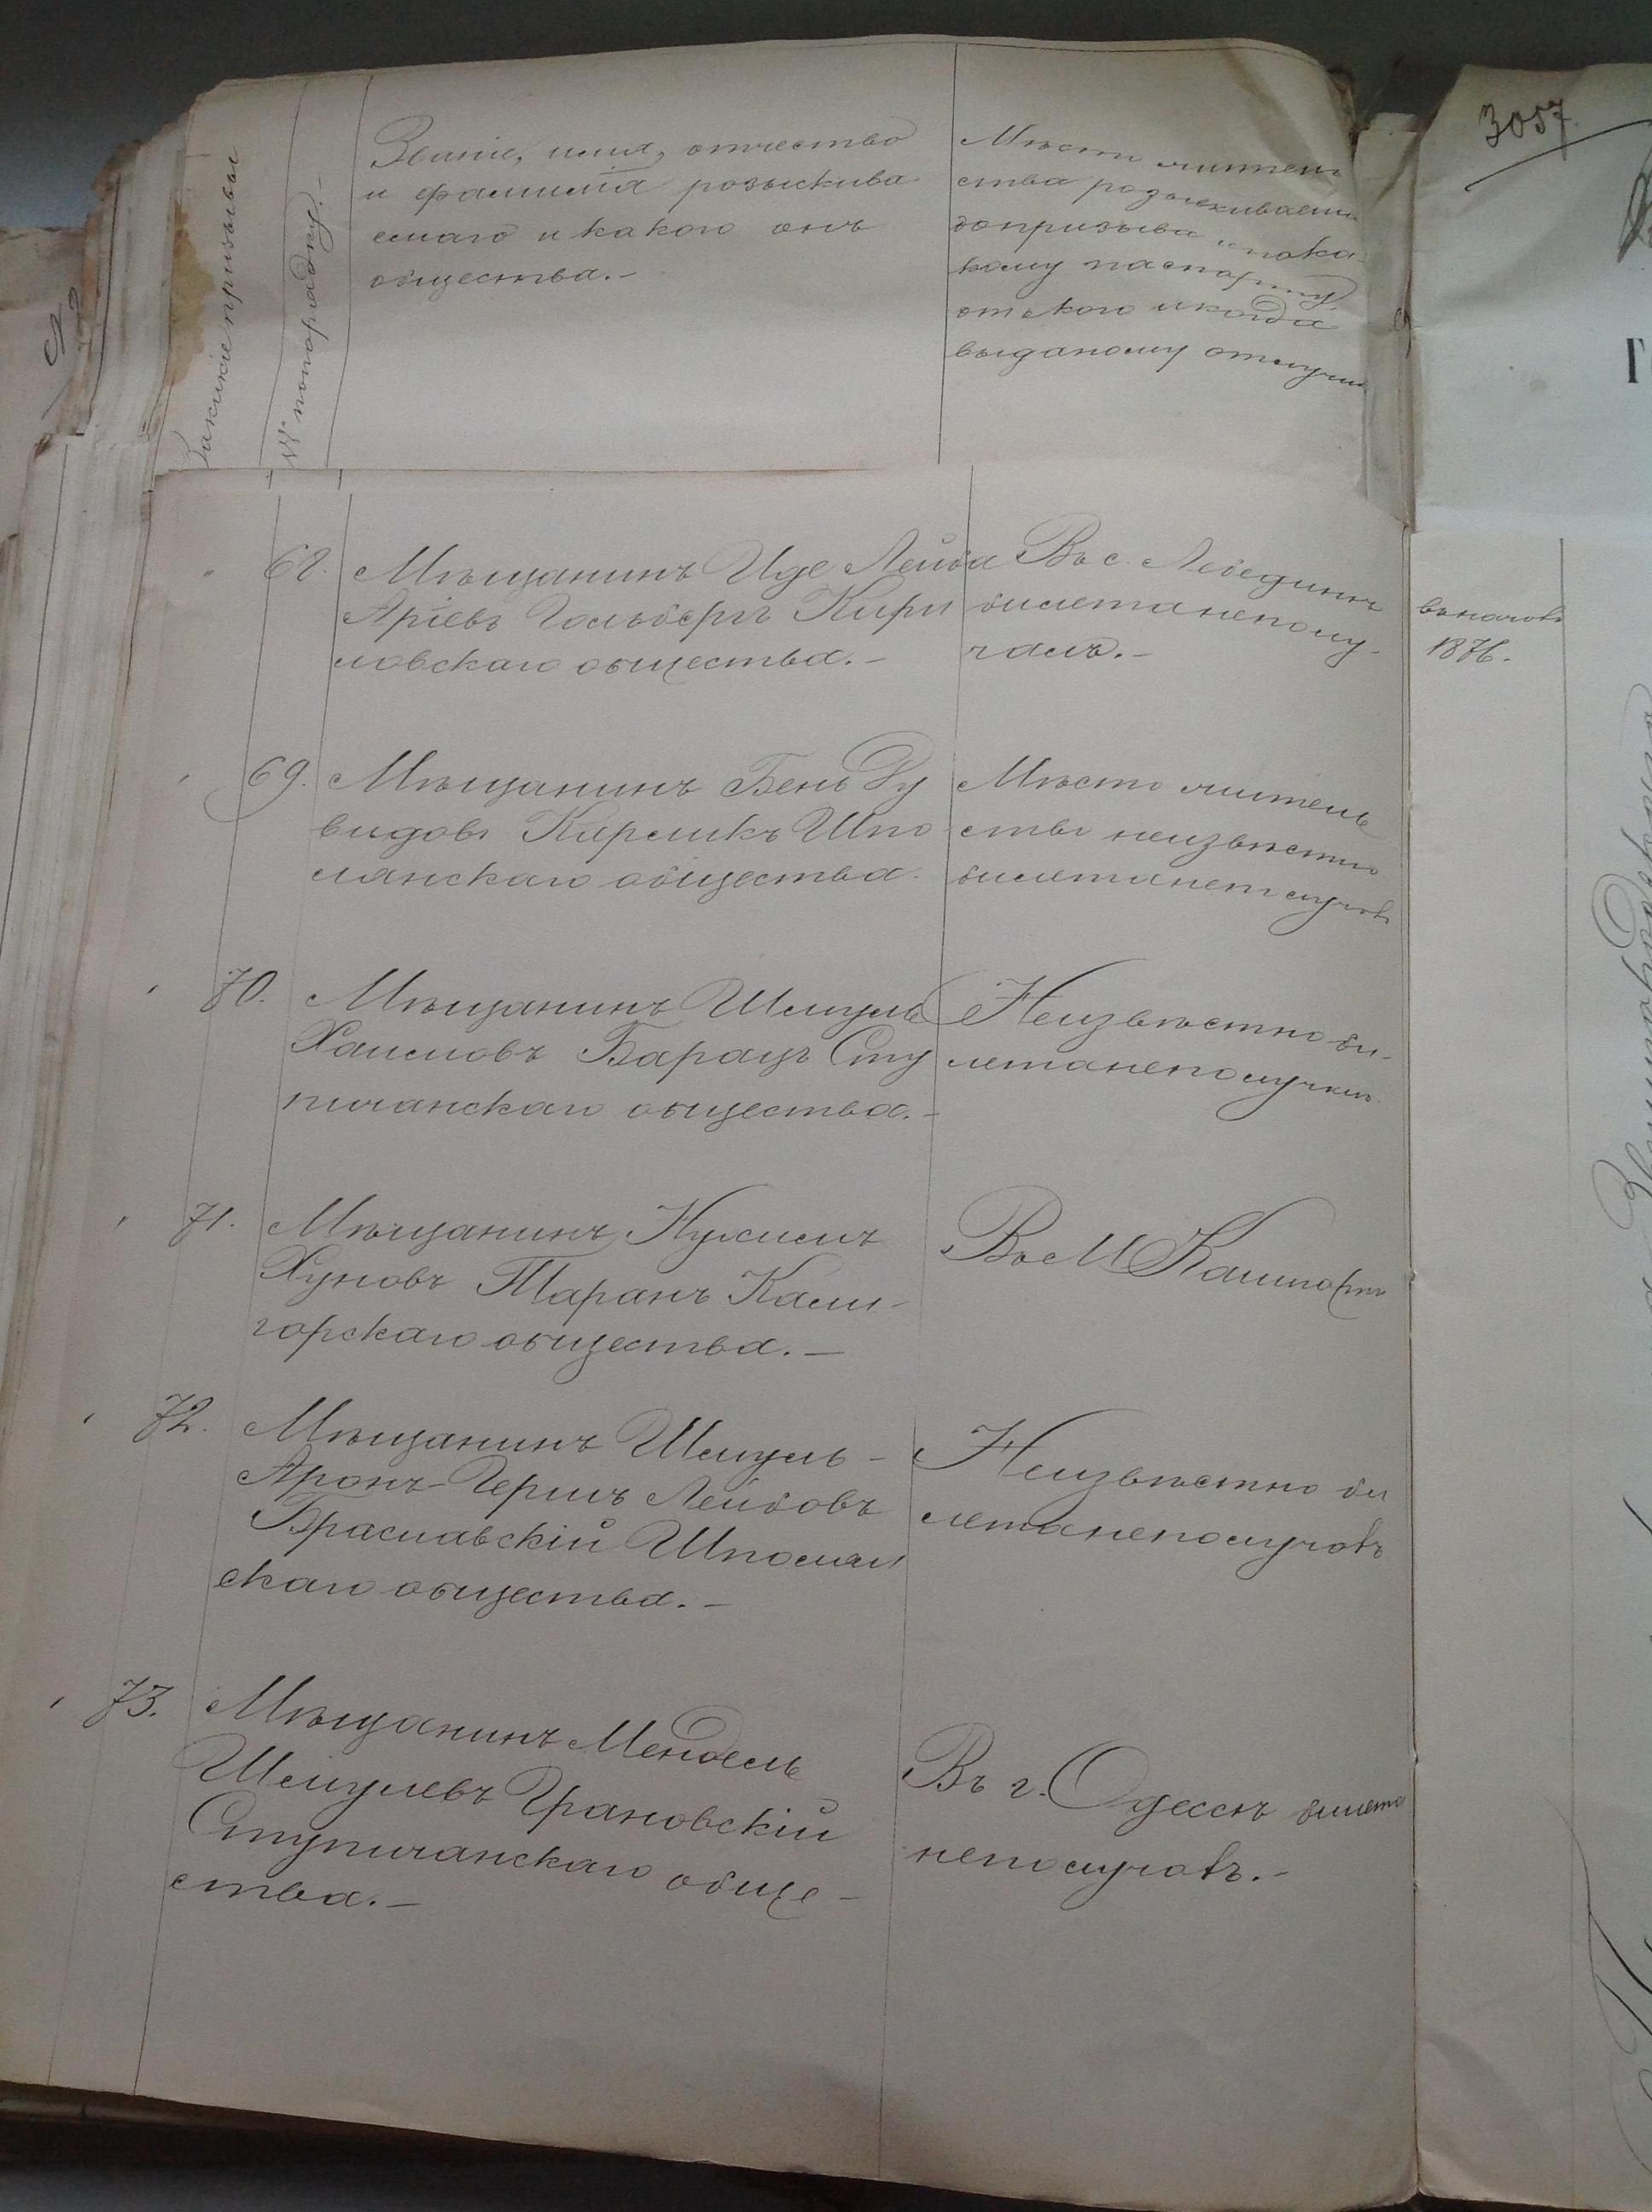 3057
№ по порядку.
Званіе, имя, отчество
и фамилія розыскива
емаго и какого онъ
общества.-
Мѣсто житель
ства розыскиваем
до призыва и по ка-
кому паспорту
отъ кого и когда
выданому отлучи
68. Мѣщанинъ Иде Лейба
Аріевъ Гольбергъ Кири
ловскаго общества.-
Въ с. Лебединѣ
билета не полу-
чалъ.-
въ началѣ
1876.
69. Мѣщанинъ Бень Ду
видовъ Карсикъ Шпо
лянскаго общества.
Мѣсто житель
ства неизвѣстно
билета не
70. Мѣщанинъ Шмуль
Хаимовъ Барацъ Сту
пичанскаго общества.-
Неизвѣстно би-
лета не получилъ
71. Мѣщанинъ Нухимъ
Хуновъ Таранъ Кали-
горскаго общества.-
Въ М
72. Мѣщанинъ Шмуль-
Аронъ-Гершъ Лейбовъ
Браславскій Шполян
скаго общества.-
Неизвѣстно би
лета не получалъ
73. Мѣщанинъ Мендель
Шмулевъ Грановскій
Ступичанскаго обще-
ства.-
Въ г. Одессѣ билета
не получалъ.-